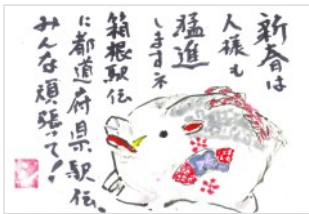 新春は
人様も
猛進
しますネ
箱根駅伝
に都道府県駅伝。
みんな頑張って!